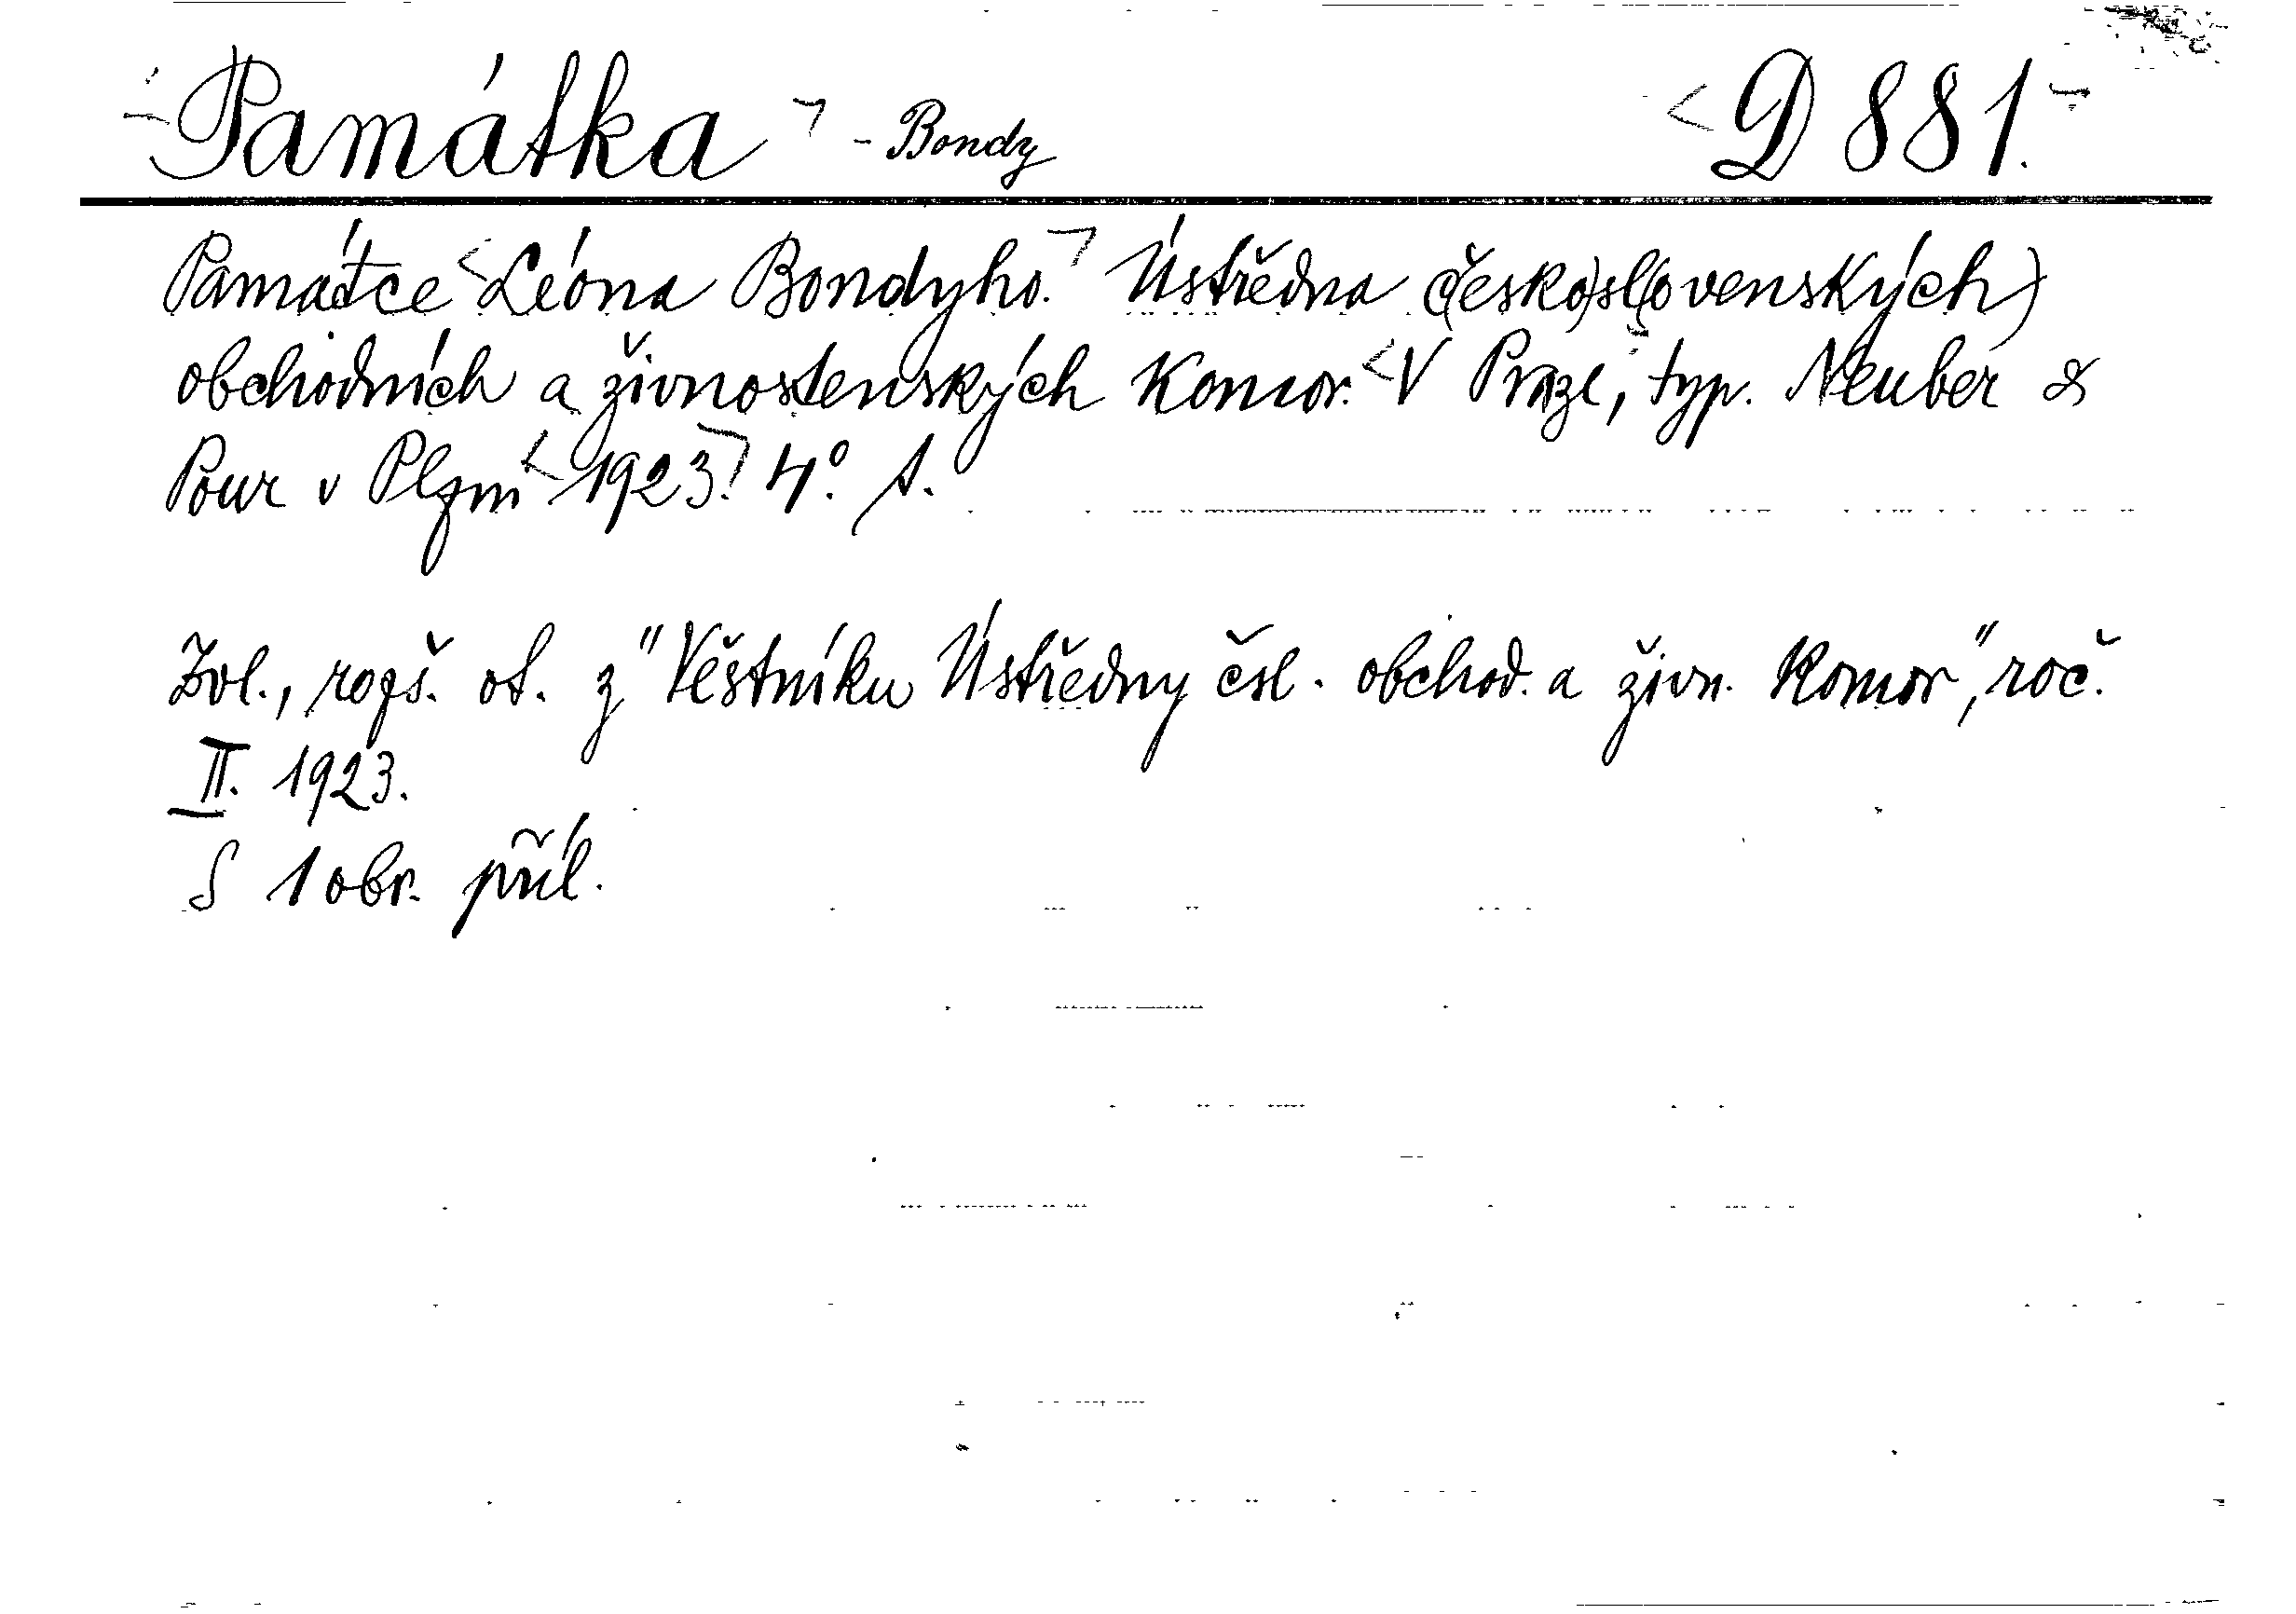 Památka - Bondy D 881.
Památce Léona Bondyho. Ústředna č(esko)sl(ovenských)
obchodních a živnostenských komor. V Praze, typ. Neuber &
Pour v Plzni 1923. 4°. s.
Zvl., rozš. ot. z "Věstníku Ústředny čsl. obchod. a živn. komor", roč.
II. 1923.
S 1 obr. příl.